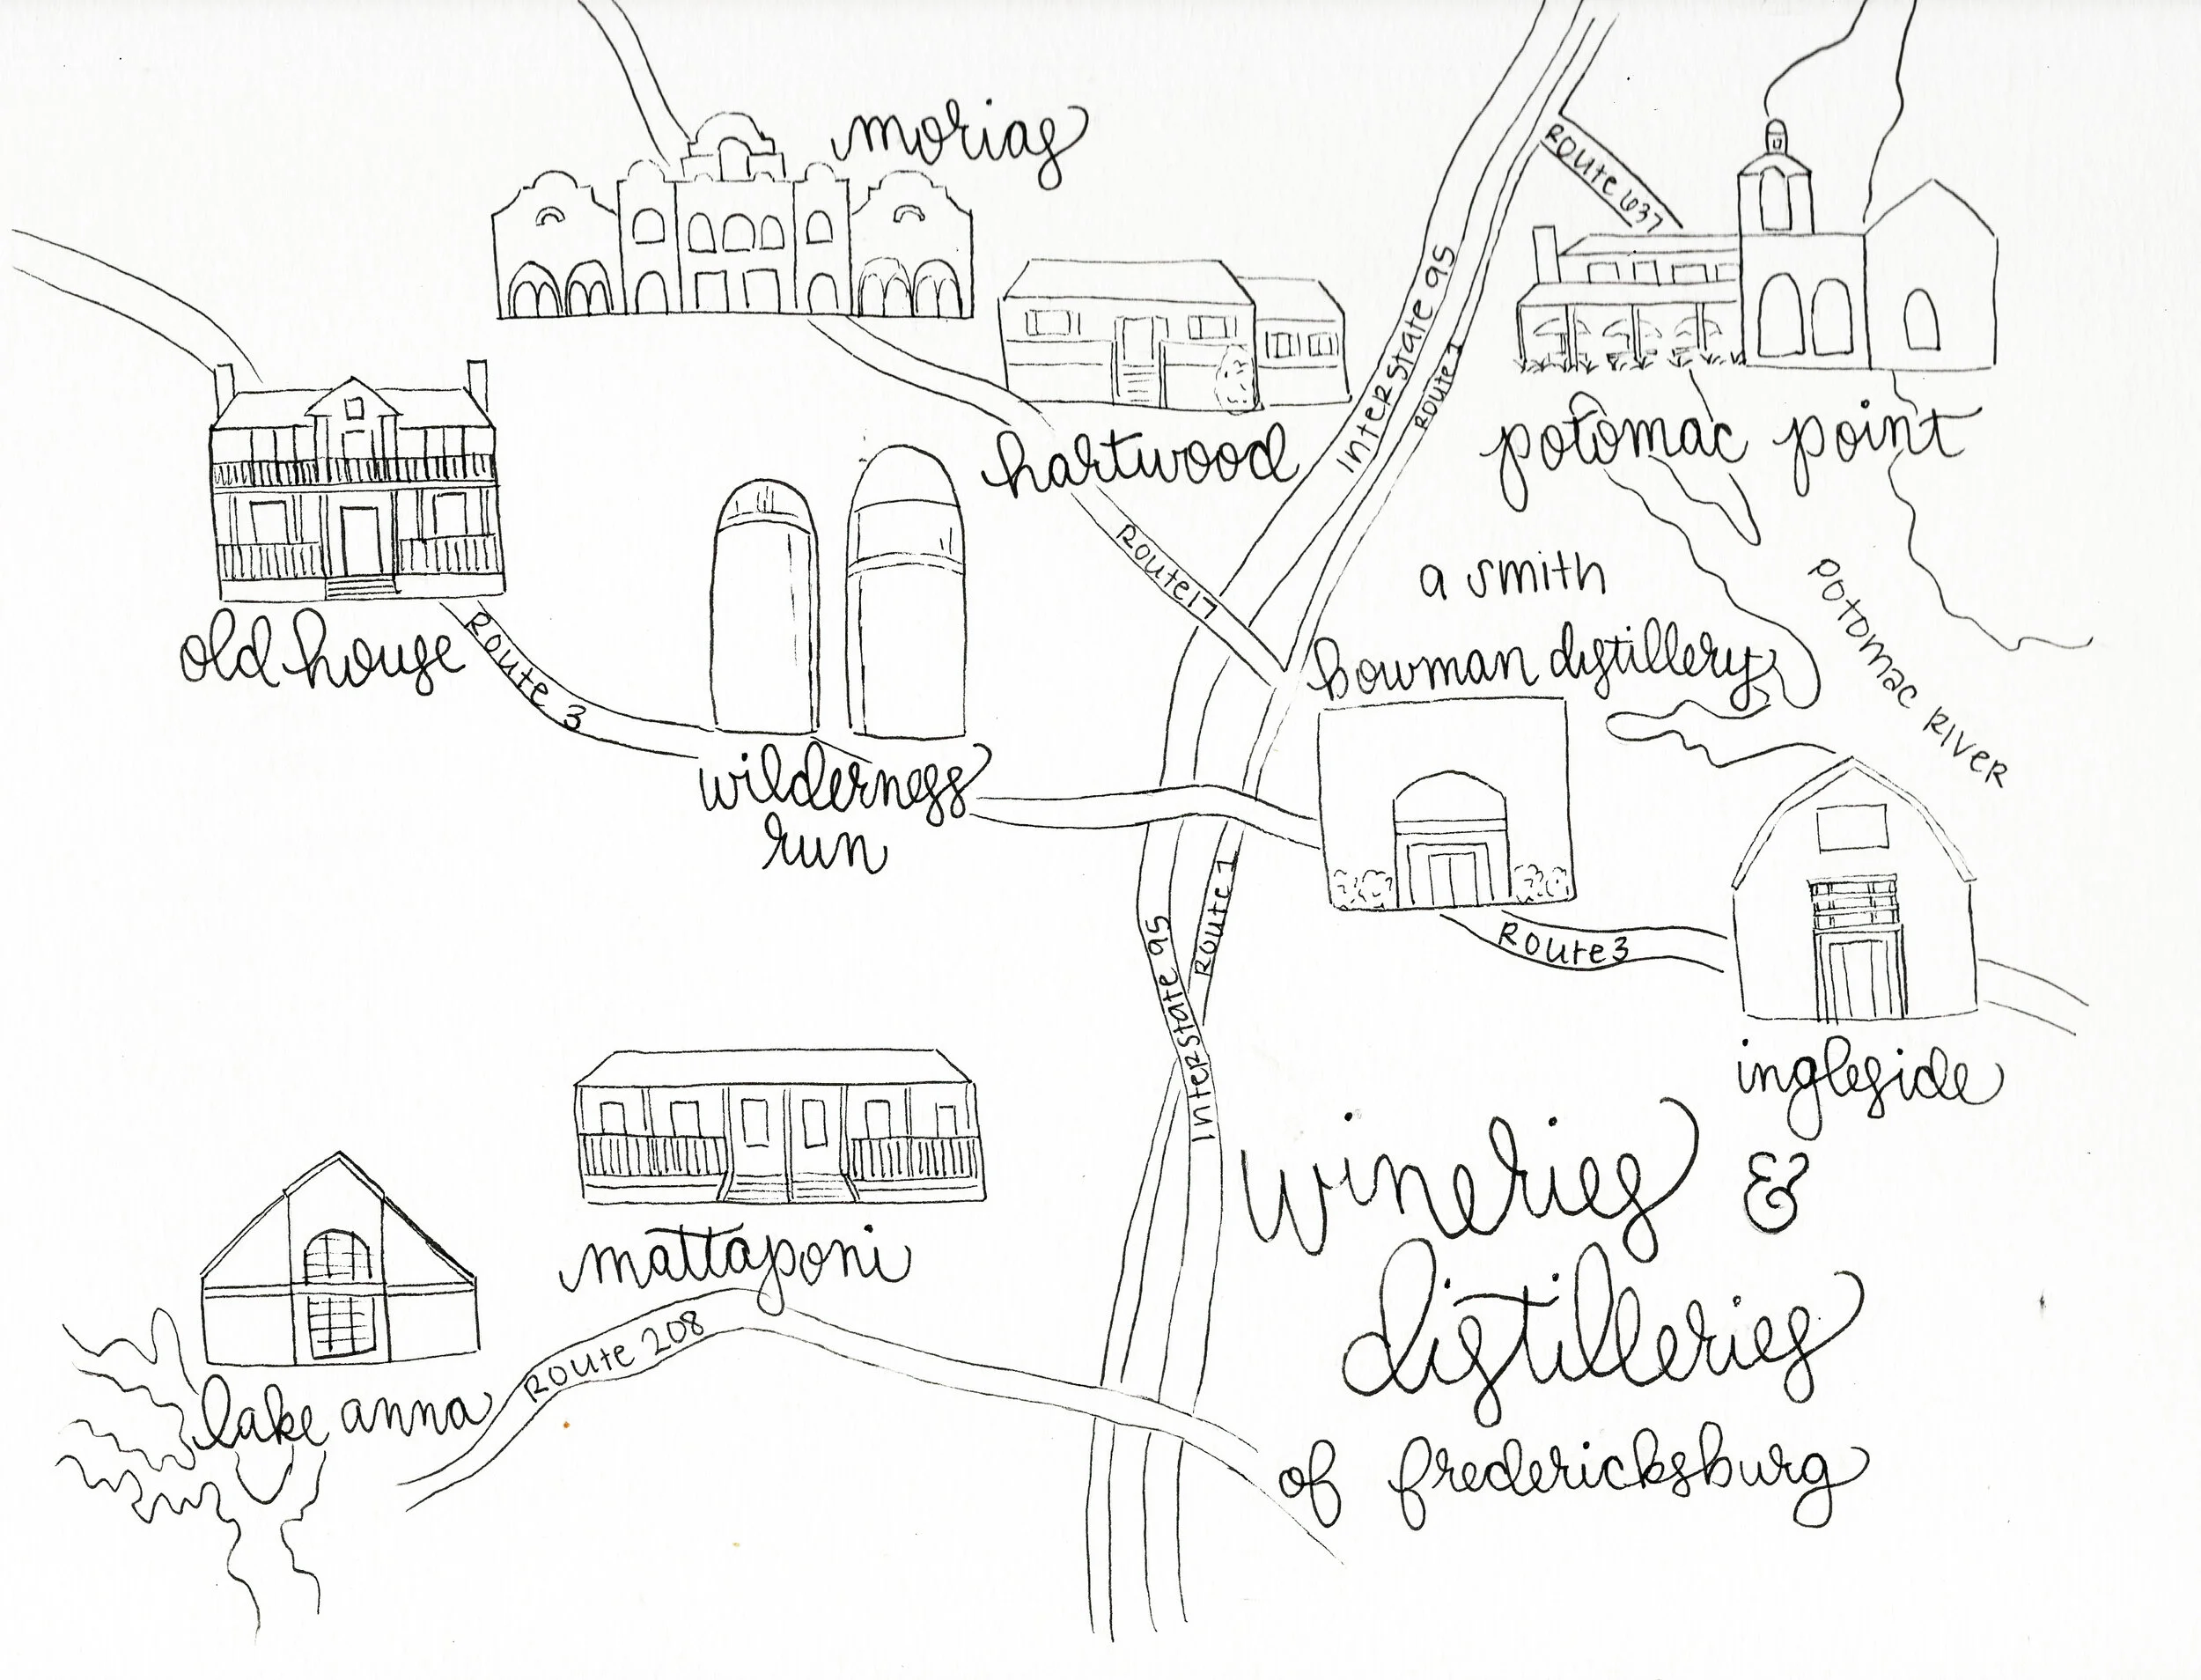 morias
Route 637
Interstate 95
Route 1
hartwood
potomac point
Route 17
a smith
bowman distillery
Potomac River
old house
Route 3
wilderness
run
Route 1
Interstate 95
Route 3
ingleside
Interstate 95
mattaponi
Route 208
lake anna
wineries &
distilleries
of fredericksburg